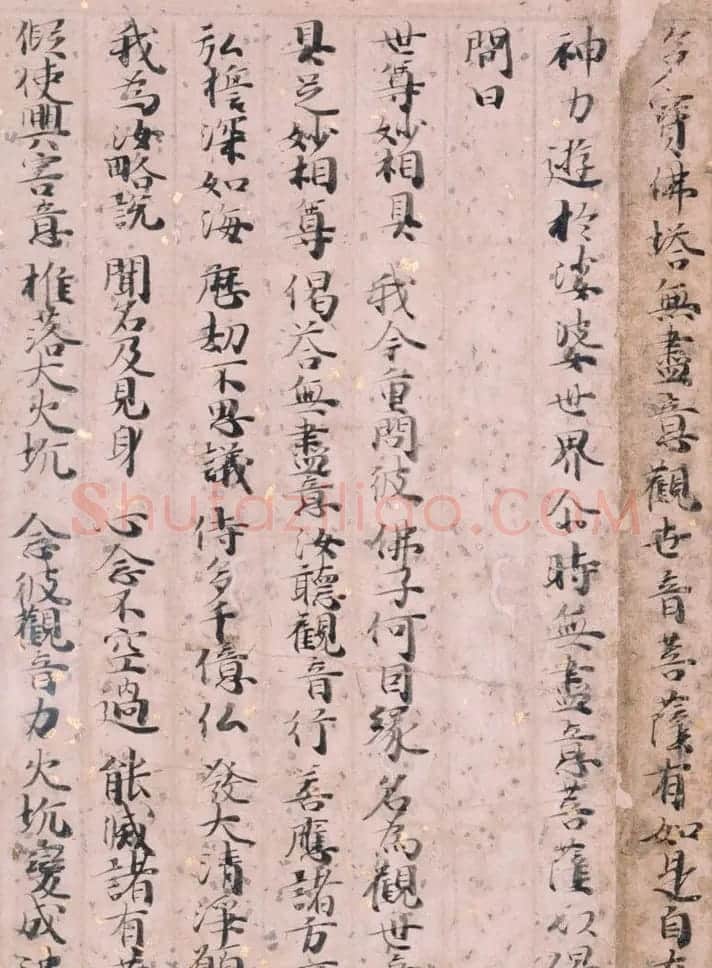 多寶佛塔無盡意觀世音菩薩有如是自
神力遊於娑婆世界尒時無盡意菩薩以偈
問曰
世尊妙相具 我今重問彼 佛子何因緣 名為觀世音
具足妙相尊 偈荅無盡意 汝聽觀音行 善應諸方
弘擔深如海 歷劫不思議 侍多千億仏 發大清淨願
我為汝略說 聞名及見身 心念不空過 能滅諸有
假使興害意 推落大火坑 念彼觀音力 火坑變成
Shufaziliao.COM